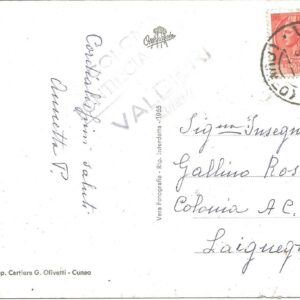 Cordialissimi saluti
Annetta P.
COLONI
VALDIERI
Vera Fotografia - Rip. Interdetta - 1955
Sig.na Insegn
Gallino Ros
Colonia A.C.
Laigueg
p. Cartiera G. Olivetti - Cuneo